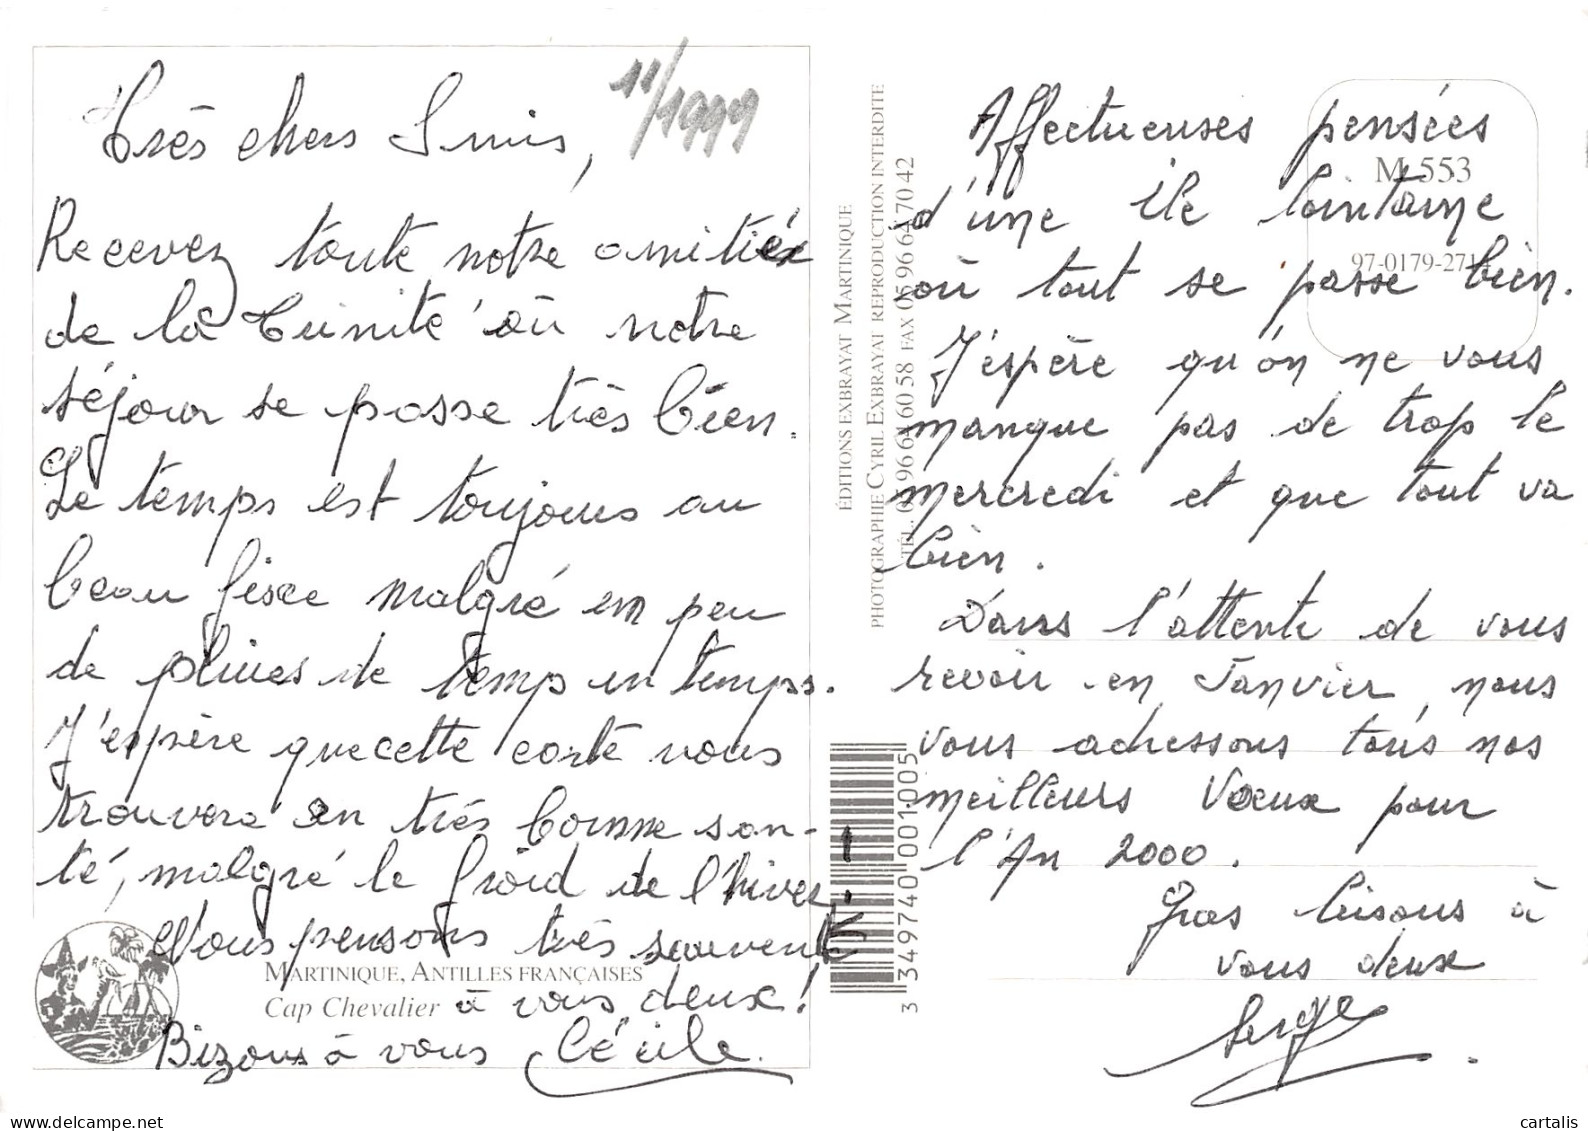 Très chers Amis,
11/1999
Recevez toute notre amitié
de la Trinité où notre
séjour se passe très bien.
Le temps est toujours au
beau fixe malgré un peu
de pluies de temps en temps.
J'espère que cette carte vous
trouvera en très bonne san-
té, malgré le froid de l'hiver.
Nous pensons très souvent
MARTINIQUE, ANTILLES FRANÇAISES
Cap Chevalier
à vous deux!
Bizous à vous Cécile.
ÉDITIONS EXBRAYAT MARTINIQUE
PHOTOGRAPHIE CYRIL EXBRAYAT REPRODUCTION INTERDITE
TÉL. 05 96 64 60 58 FAX 05 96 64 70 42
3 349740 001005
M 553
97-0179-271
Affectueuses pensées
d'une île lointaine
où tout se passe bien.
J'espère qu'on ne vous
manque pas de trop le
mercredi et que tout va
bien.
Dans l'attente de vous
revoir en Janvier, nous
vous adressons tous nos
meilleurs Voeux pour
l'An 2000.
Gros bisous à
vous deux
Serge
cartalis